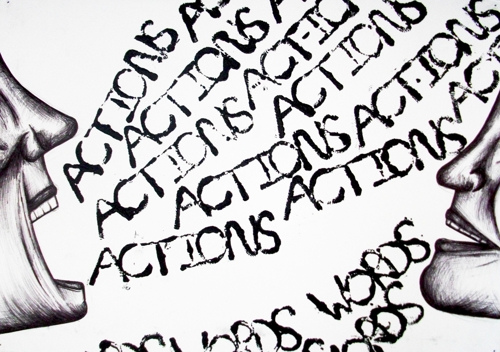 ACTIONS AC
ACTIONS A
ACTIONS ACTIONS
ACTIONS ACTIONS
ACTIONS ACTIONS AC
ACTIONS ACTIONS
WORDS
WORDS WORDS